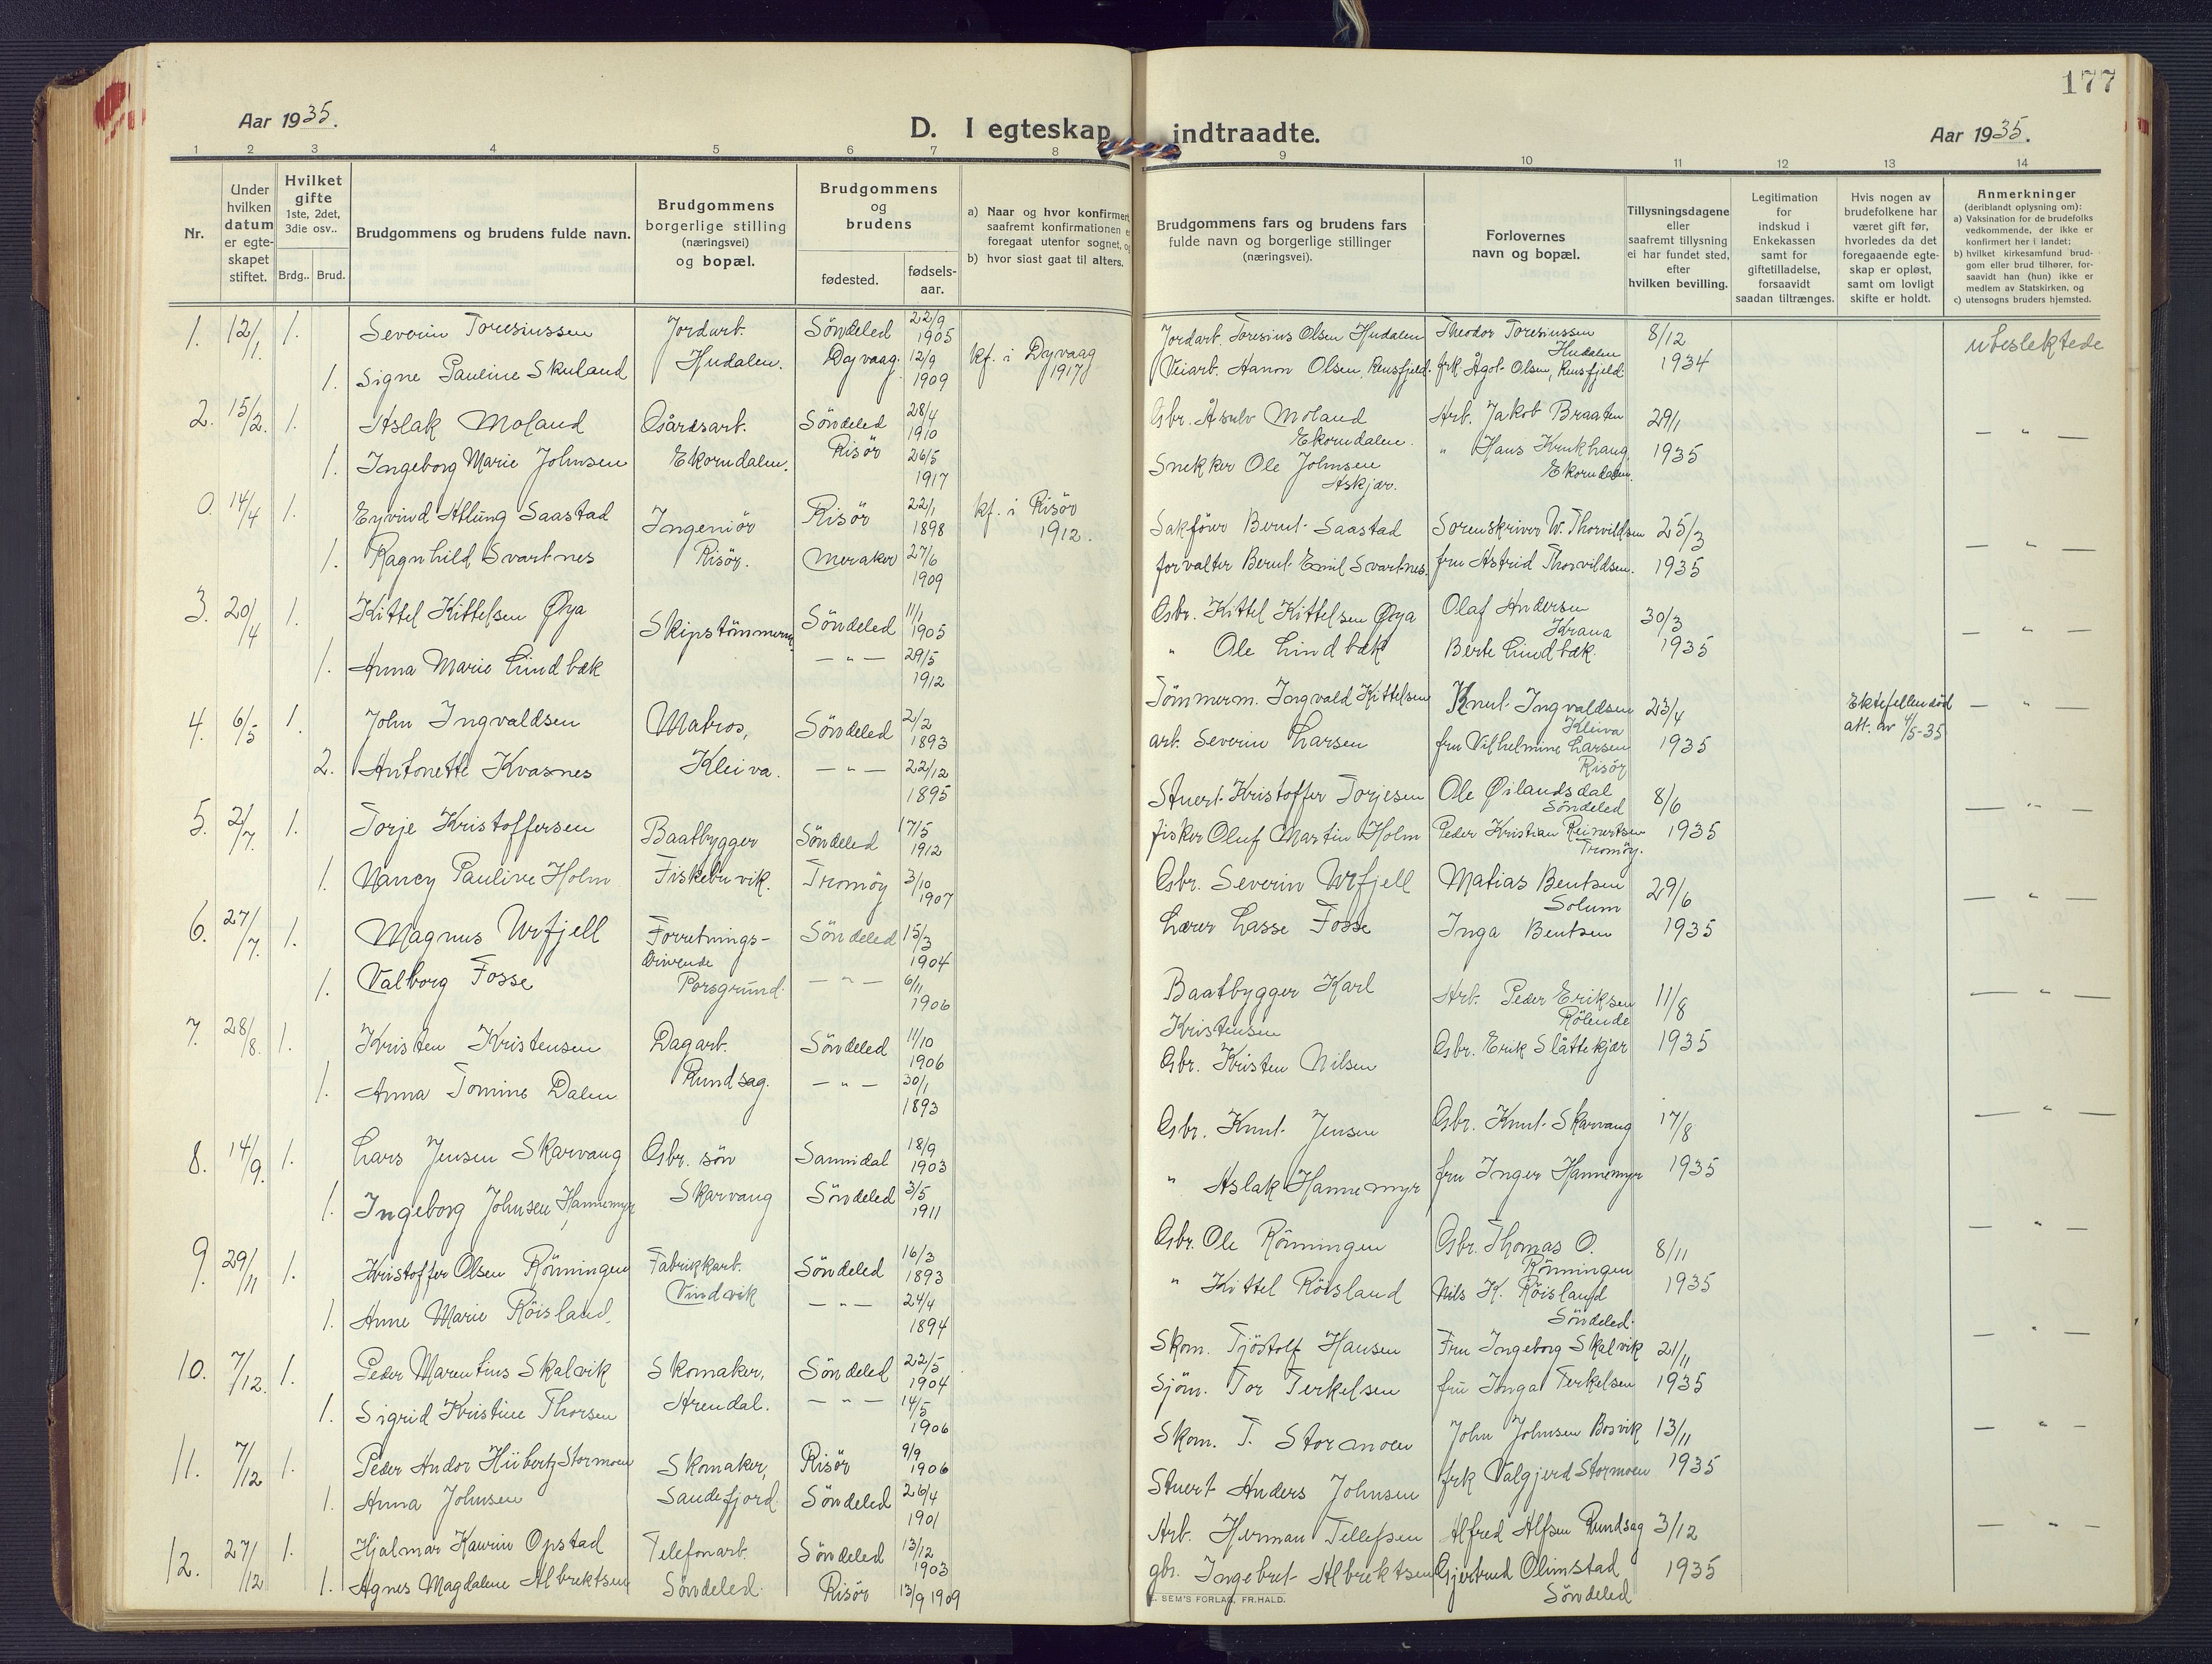 177
Aar 1935.
D. I egteskap indtraadte.
Aar 1935.
1 2 3 4 5 6 7 8 9 10 11 12 13 14
Nr.
Under hvilken datum er egte-skapet stiftet.
Hvilket gifte
1ste, 2det, 3die osv..
Brdg.. Brud.
Brudgommens og brudens fulde navn.
Brudgommens borgerlige stilling (næringsvei) og bopæl.
Brudgommens og brudens
fødested. fødsels-aar.
a) Naar og hvor konfirmert
saafremt konfirmationen
foregaat utenfor sognet,
b) hvor sidst gaat til alters.
Brudgommens fars og brudens fars
fulde navn og borgerlige stillinger
(næringsvei).
Forlovernes
navn og bopæl.
Tillysningsdagene
eller
saafremt tillysning
ei har fundet sted,
efter
hvilken bevilling.
Legitimation
for
indskud i
Enkekassen
samt for
giftetilladelse,
forsaavidt
saadan tiltrænges.
Hvis nogen av
brudefolkene har
været gift før,
hvorledes da det
foregaaende egte-
skap er opløst,
samt om lovligt
skifte er holdt.
Anmerkninger
(deriblandt oplysning om):
a) Vaksination for de brudefolks
vedkommende, der ikke er
konfirmert her i landet;
b) hvilket kirkesamfund brud-
gom eller brud tilhører, for-
saavidt han (hun) ikke er
medlem av Statskirken, og
c) utensogns bruders hjemsted.
1. 12/1. 1. Severin Toresiussen Jordarb. Söndeled 22/9 1905 Jordarb. Toresius Olsen Hudalen Theodor Toresiussen Hudalen 8/12 ubeslektede
1. Signe Pauline Skuland Hudalen. Dyvaag. 12/9 1909 kf. i Dyvaag 1917 Veiarb. Hanon Olsen, Rensfjeld. frk. Ågot Olsen, Rensfjeld 1934
2. 15/2. 1. Aslak Moland Gårdsarb. Söndeled 28/4 1910 Gbr. Åsulv Moland Ekorndalen. Arb. Jakob Braaten 29/1 — " —
1. Ingeborg Marie Johnsen Ekorndalen. Risör 26/5 1917 Snekker Ole Johnsen Askjær. " Hans Krukhaug Ekorndalen. 1935
0. 14/4 1. Eyvind Atlung Saastad Ingeniör Risör 22/1 1898 kf. i Risör 1912. Sakförer Bernt Saastad Sorenskriver W. Thorvildsen 25/3 — " —
1. Ragnhild Svartnes Risör. Meraker 27/6 1909 forvalter Bernt Emil Svartnes. fru Astrid Thorvildsen. 1935
3. 20/4 1. Kittel Kittelsen Øya Skipstömmerm. Söndeled 11/1 1905 Gbr. Kittel Kittelsen Øya Olaf Andersen Krana 30/3 — " —
1. Anna Marie Lindbæk — " — 29/5 1912 " Ole Lindbæk Berte Lindbæk. 1935
4. 6/5 1. John Ingvaldsen Matros, Söndeled 2/2 1893 Tömmerm. Ingvald Kittelsen Knut Ingvaldsen Kleiva 23/4 Ektefellen död — " —
2. Antonette Kvasnes Kleiva. — " — 22/12 1895 arb. Severin Larsen fru Vilhelmine Larsen Risör 1935 att. av 4/5-35
5. 2/7. 1. Torje Kristoffersen Baatbygger Söndeled 17/5 1912 Stuert Kristoffer Torjesen Ole Øilandsdal Söndeled 8/6 — " —
1. Nancy Pauline Holm Fiskebuvik. Tromöy 3/10 1907 fisker Oluf Martin Holm Peder Kristian Reinertsen Tromöy. 1935
6. 27/7. 1. Magnus Urfjell Forretnings-drivende Söndeled 15/3 1904 Gbr. Severin Urfjell Matias Bentsen Solum 29/6 — " —
1. Valborg Fosse Porsgrund. — " — 6/11 1906 Lærer Lasse Fosse Inga Bentsen 1935
7. 28/8. 1. Kristen Kristensen Dagarb. Söndeled 11/10 1906 Baatbygger Karl Kristensen Arb. Peder Eriksen Rölende 11/8 — " —
1. Anna Tomine Dalen Rundsag. — " — 30/1 1893 Gbr. Kristen Nilsen Gbr. Erik Slåttekjær 1935
8. 14/9. 1. Lars Jensen Skarvang Gbr. sön Sannidal 18/9 1903 Gbr. Knut Jensen Gbr. Knut Skarvang 17/8 — " —
1. Ingeborg Johnsen Hannemyr Skarvang Söndeled 3/5 1911 " Aslak Hannemyr fru Inger Hannemyr 1935
9. 29/11 1. Kristoffer Olsen Rönningen Fabrikkarb. Söndeled 16/3 1893 Gbr. Ole Rönningen Gbr. Thomas O. Rönningen 8/11 — " —
1. Anne Marie Röisland. Vindvik — " — 24/4 1894 " Kittel Röisland Nils K. Röisland Söndeled. 1935
10. 7/12. 1. Peder Marentius Skalvik Skomaker, Söndeled 22/5 1904 Skom. Tjöstolf Hansen Fru Ingeborg Skalvik 21/11 — " —
1. Sigrid Kristine Thorsen Arendal. — " — 14/5 1906 Sjöm. Tor Terkelsen frü Inga Terkelsen 1935
11. 7/12 1. Peder Andor Hübertz Stormoen Skomaker, Risör 9/9 1906 Skom. T. Stormoen John Johnsen Bosvik 13/11 — " —
1. Anna Johnsen Sandefjord. Söndeled 26/4 1901 Stuert Anders Johnsen frk Valgjerd Stormoen 1935
12. 27/12 1. Hjalmar Kaurin Opstad Telefonarb. Söndeled 13/12 1903 Arb. Herman Tellefsen Alfred Alfsen Rundsag 3/12 — " —
1. Agnes Magdalene Albrektsen Söndeled. Risör 13/9 1909 gbr. Ingebret Albrektsen Gjertrud Olimstad Söndeled 1935
SEM'S FORLAG, FR.HALD.